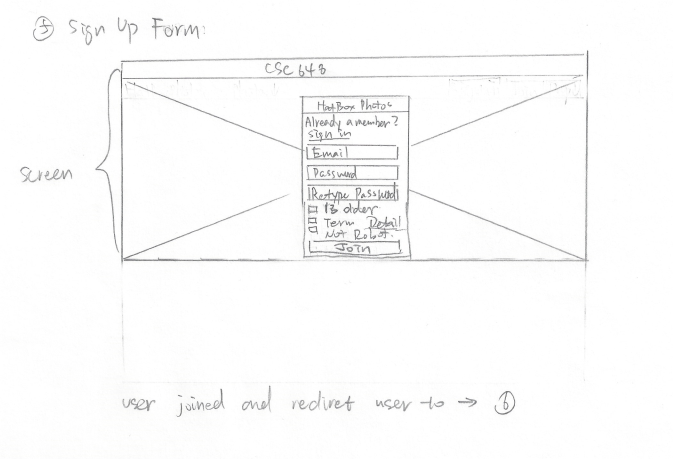 ⑤ Sign Up Form:
CSC 648
HotBox Photos
Already a member?
sign in
Email
Password
Retype Password
13 older
Term Detail
Not Robot.
Join
screen
user joined and rediret user to → ⑥